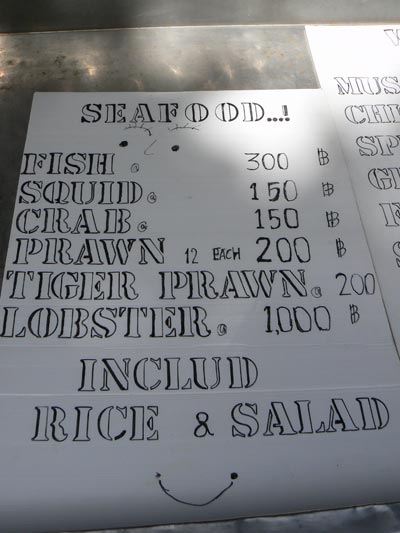 SEAFOOD...!
FISH. 300 ฿
SQUID. 150 ฿
CRAB. 150 ฿
PRAWN 12 EACH 200 ฿
TIGER PRAWN. 200
LOBSTER. 1,000 ฿
INCLUD
RICE & SALAD
MUS